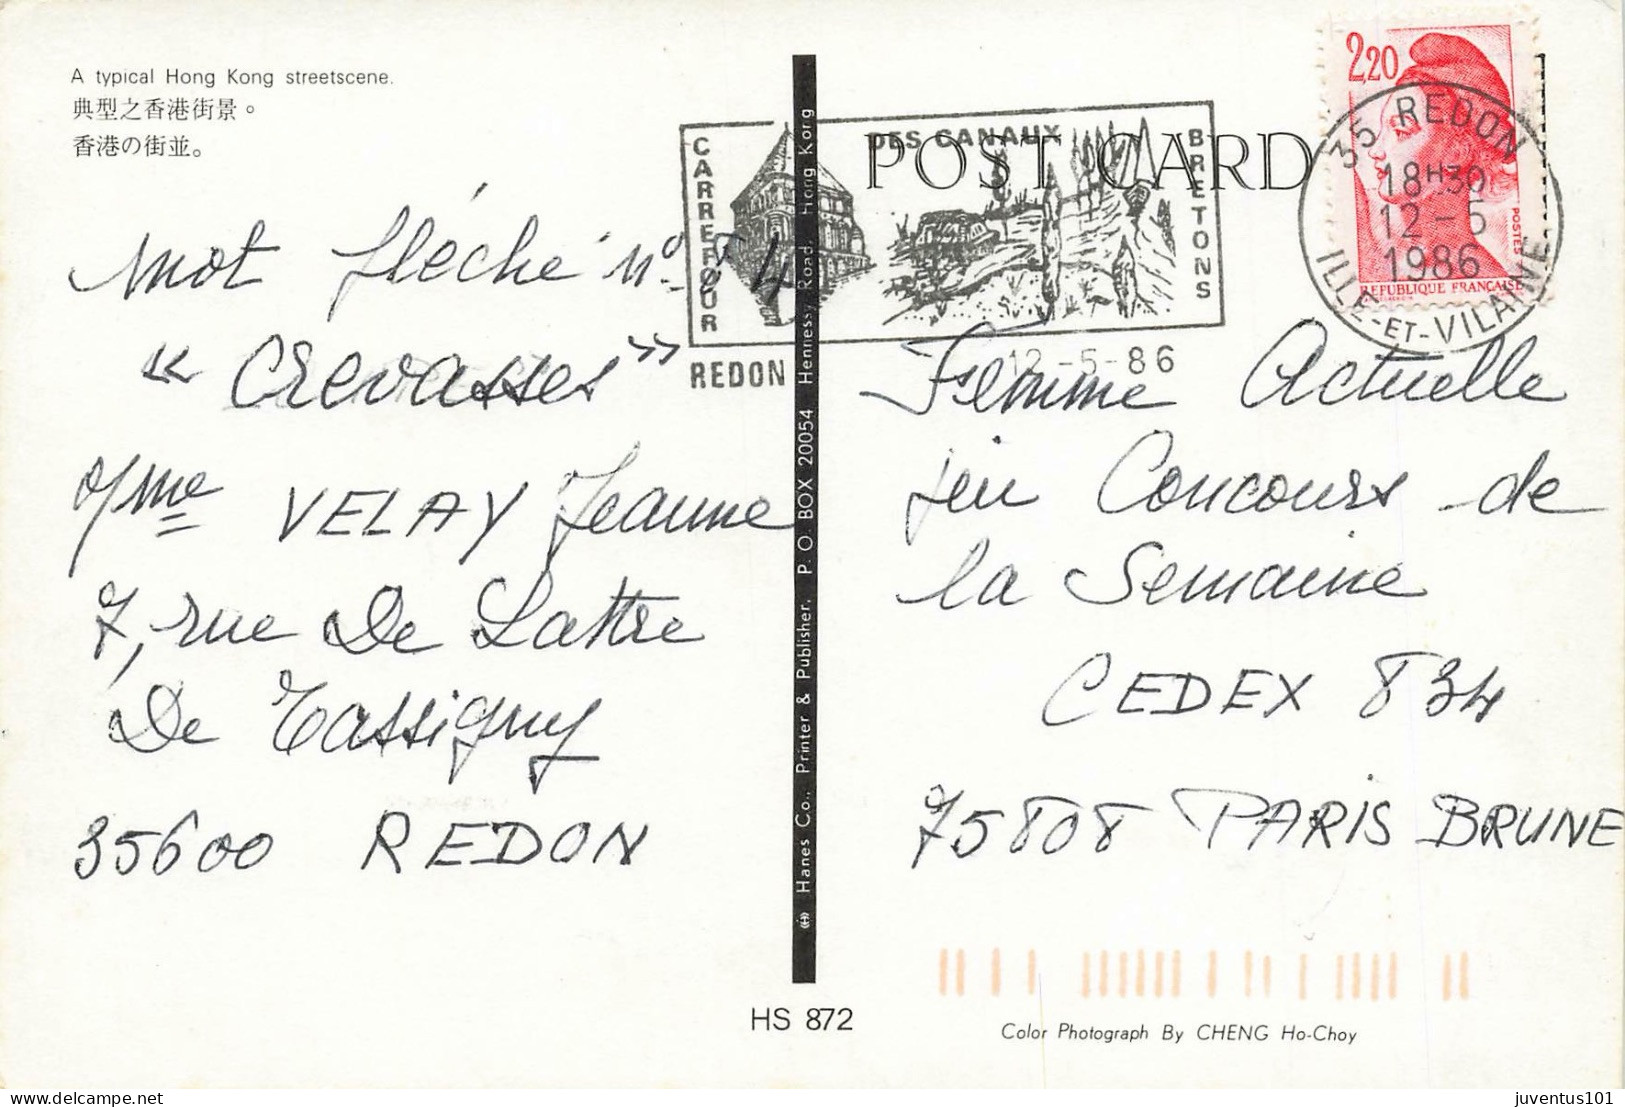 A typical Hong Kong streetscene.
典型之香港街景。
香港の街並。
POST CARD
CARREFOUR
DES CANAUX
BRETONS
REDON
12-5-86
35 REDON
18H30
12-5
1986
ILLE-ET-VILAINE
2,20
POSTES
REPUBLIQUE FRANÇAISE
Mot fléché n° 84
"Crevasses"
Mme VELAY Jeanne
7, rue De Lattre
De Tassigny
35600 REDON
Femme Actuelle
jeu Concours de
la Semaine
CEDEX 834
75808 PARIS BRUNE
Hanes Co., Printer & Publisher. P. O. BOX 20054 Hennessy Road, Hong Kong
HS 872
Color Photograph By CHENG Ho-Choy
delcampe.net
juventus101